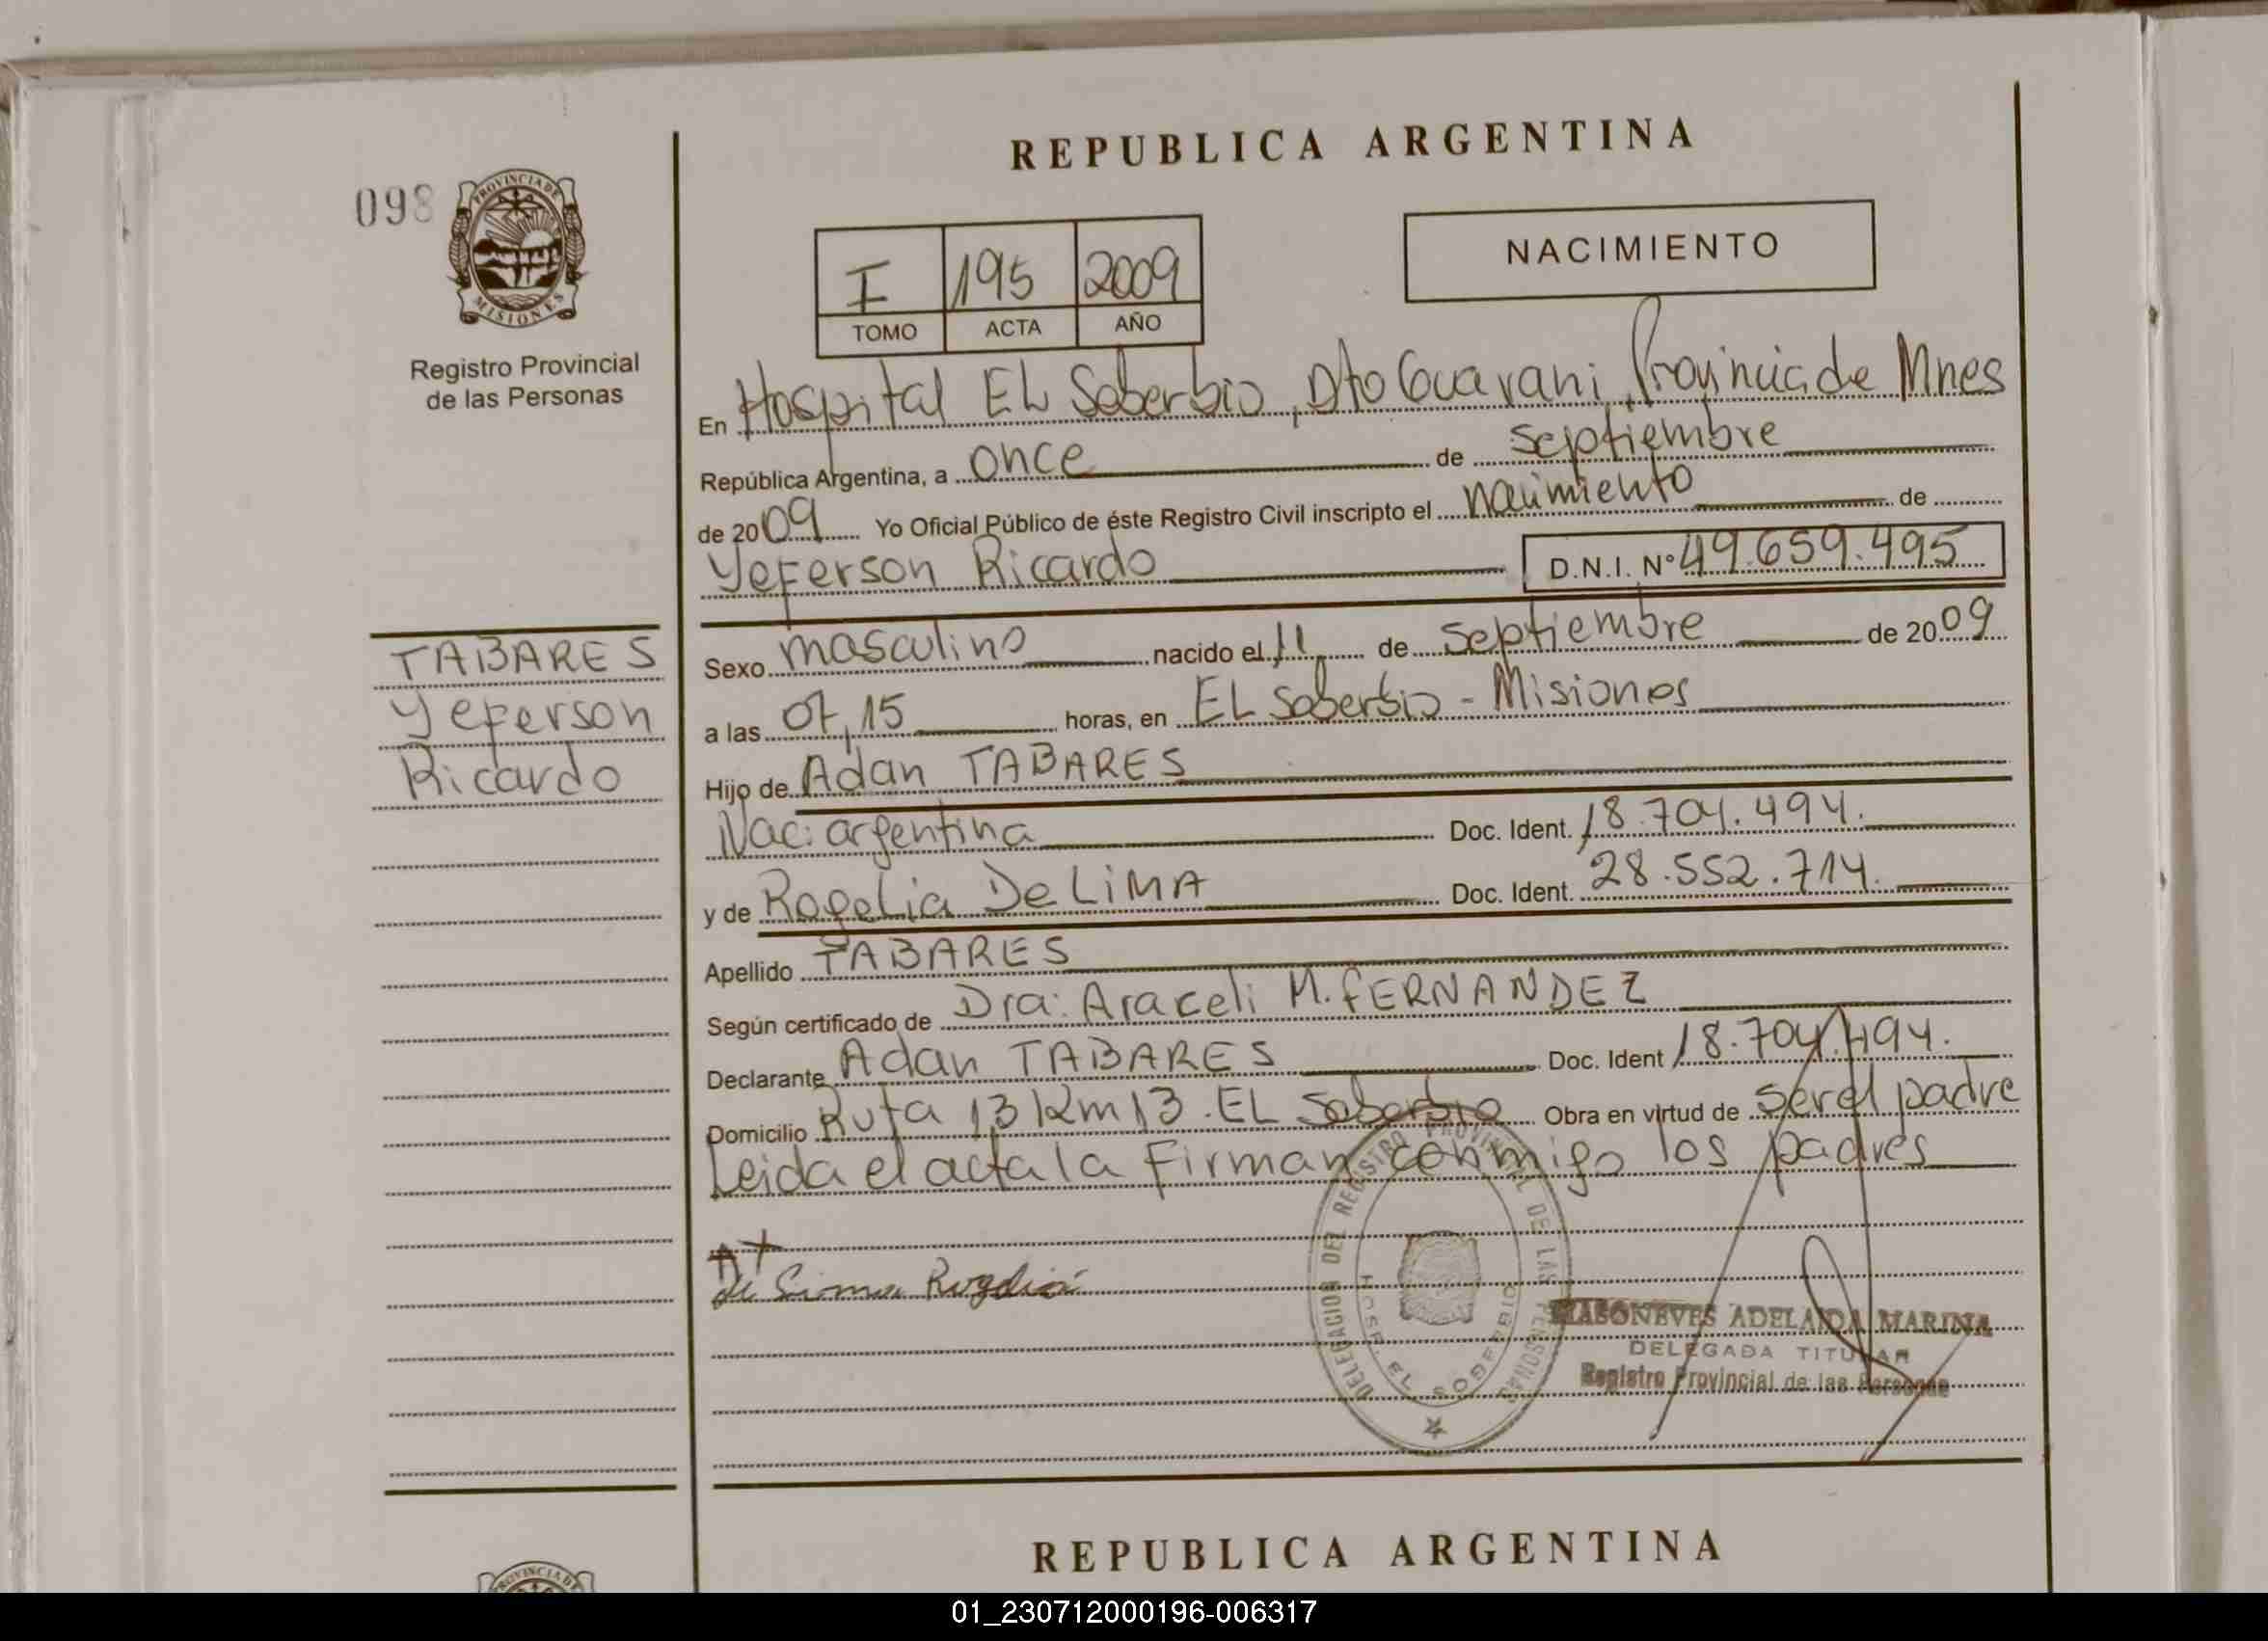 REPUBLICA ARGENTINA
098
PROVINCIA DE
MISIONES
Registro Provincial
de las Personas
I 195 2009
TOMO ACTA AÑO
NACIMIENTO
En Hospital EL Soberbio, Dto Guarani, Provincia de Mnes
República Argentina, a once de septiembre
de 2009 Yo Oficial Público de éste Registro Civil inscripto el nacimiento de
Yeferson Ricardo D.N.I. Nº 49.659.495
TABARES
Yeferson
Ricardo
Sexo masculino nacido el 11 de septiembre de 2009
a las 07,15 horas, en EL Soberbio - Misiones
Hijo de Adan TABARES
Nac: argentina Doc. Ident. 18.704.494.
y de Rogelia De LiMA Doc. Ident. 28.552.714.
Apellido TABARES
Según certificado de Dra: Araceli M. FERNANDEZ
Declarante Adan TABARES Doc. Ident 18.704.494.
Domicilio Ruta 13 Km 13. EL Soberbio Obra en virtud de ser el padre
Leida el acta la Firman conmigo los padres
DELEGACION DEL REGISTRO PROVINCIAL DE LAS PERSONAS
HOSP. EL SOBERBIO
ADELAIDA MARINA
DELEGADA TITULAR
Registro Provincial de las Personas
REPUBLICA ARGENTINA
PROVINCIA DE
01_230712000196-006317